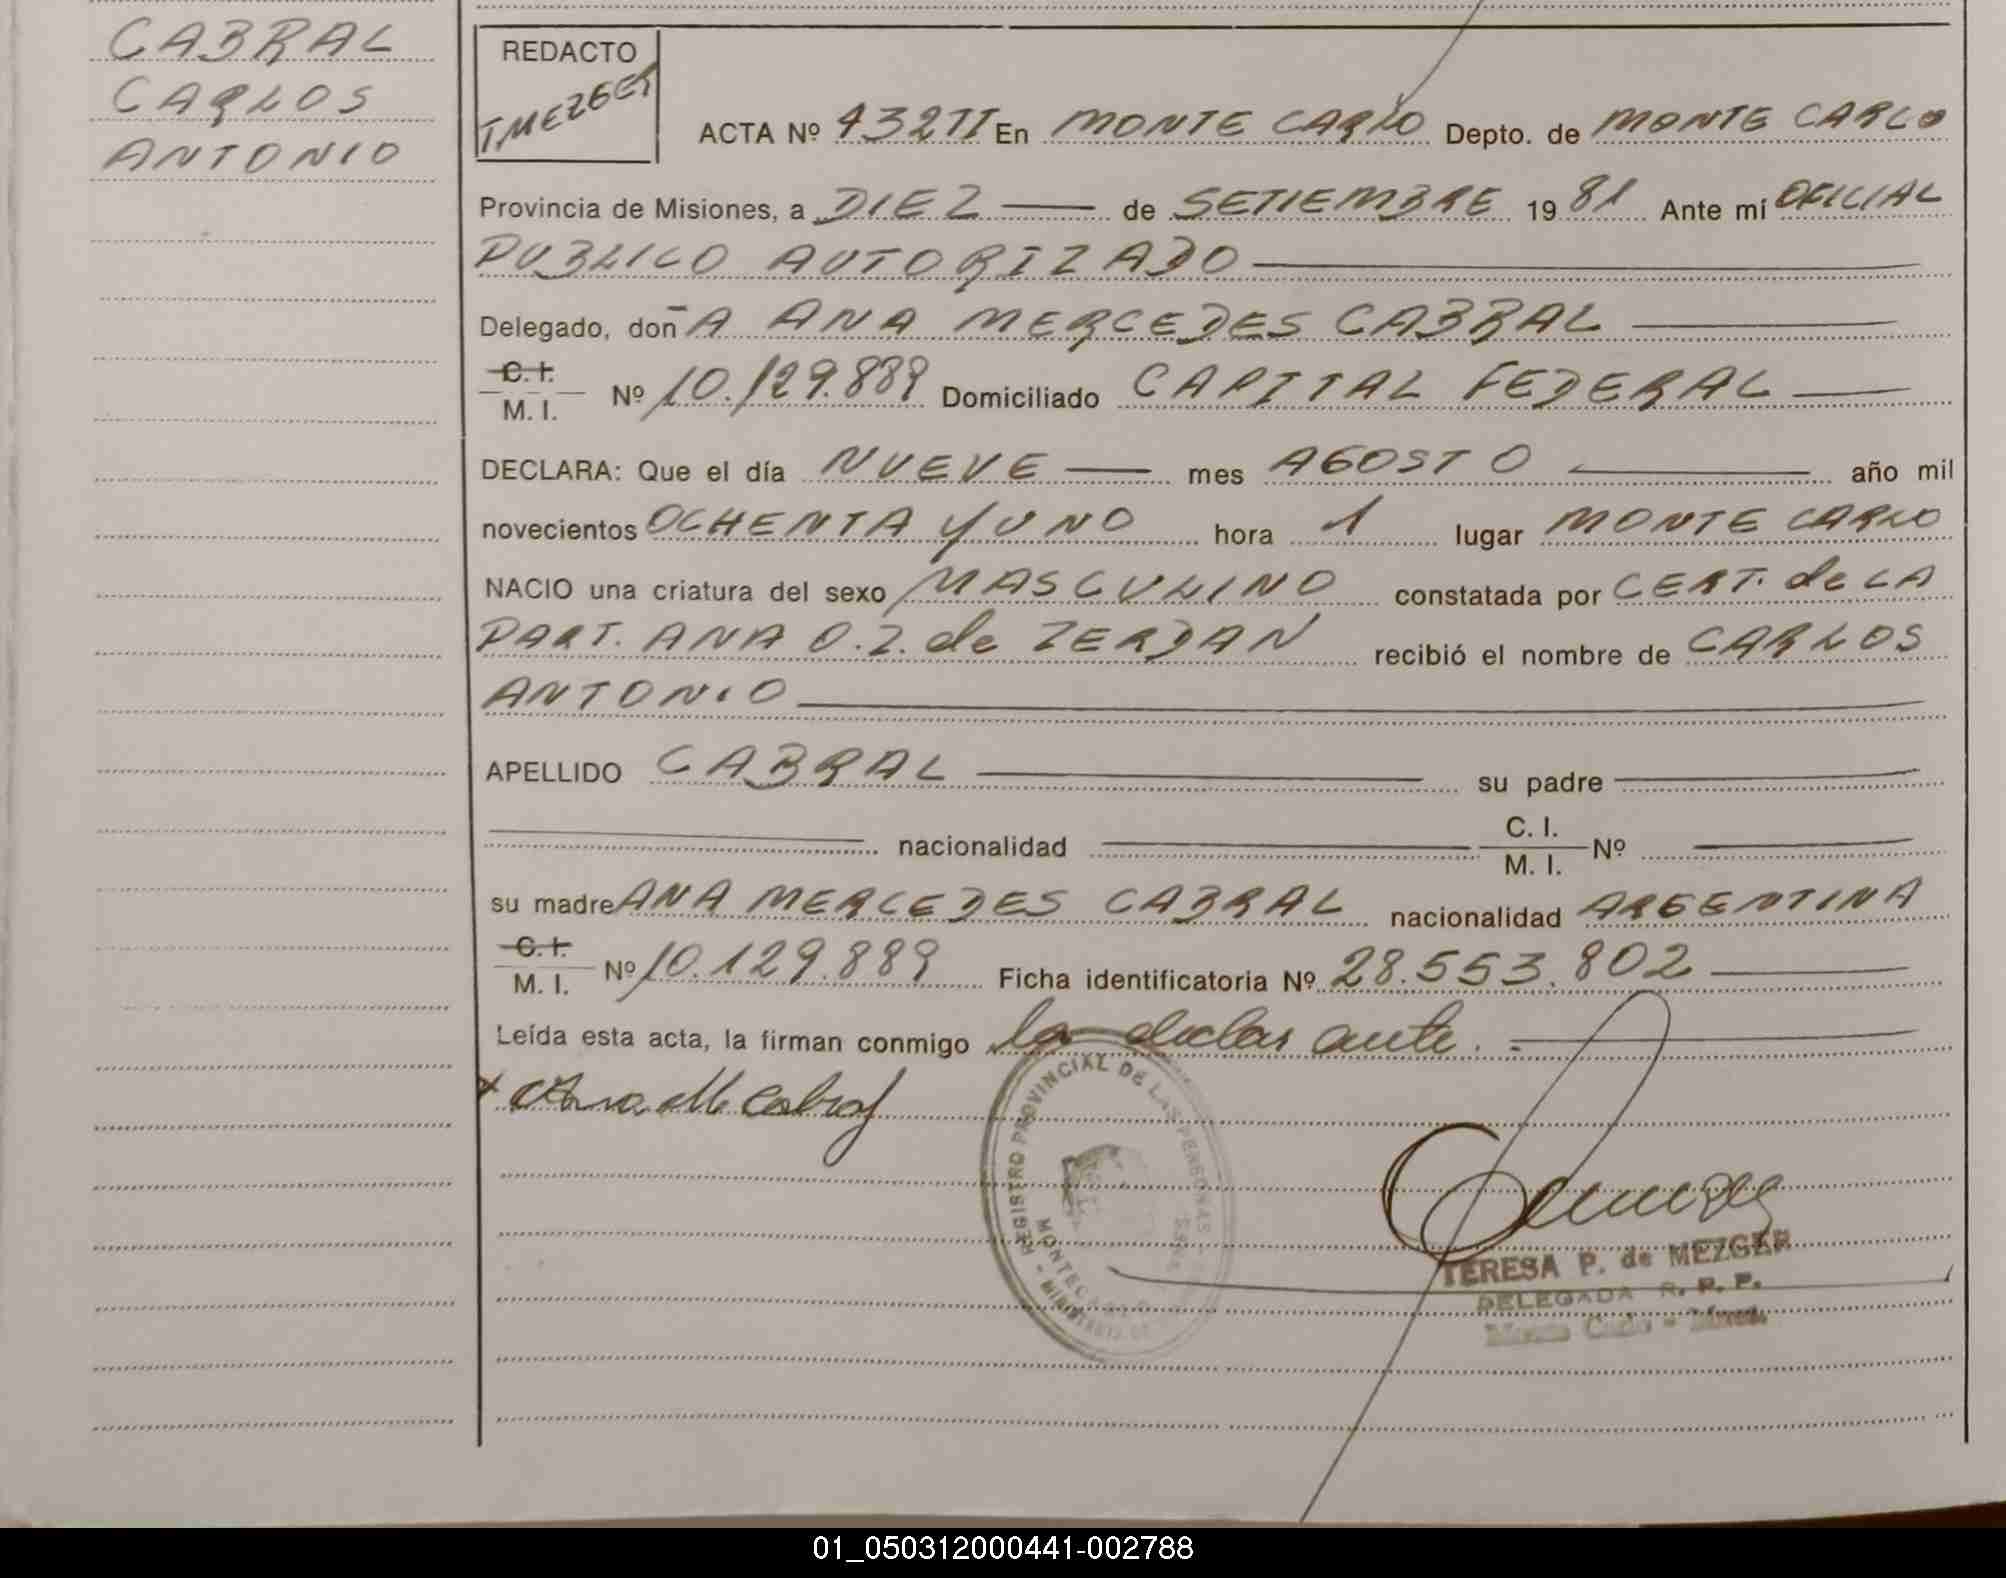 CABRAL
CARLOS
ANTONIO
REDACTO
TMEZGER
ACTA Nº 432TI En MONTE CARLO Depto. de MONTE CARLO
Provincia de Misiones, a DIEZ — de SETIEMBRE 1981 Ante mí OFICIAL
PUBLICO AUTORIZADO
Delegado, doñA ANA MERCEDES CABRAL
C. I.
M. I. Nº 10.129.889 Domiciliado CAPITAL FEDERAL
DECLARA: Que el día NUEVE — mes AGOSTO — año mil
novecientos OCHENTA y UNO hora 1 lugar MONTE CARLO
NACIO una criatura del sexo MASCULINO constatada por CERT. de LA
PART. ANA O.Z. de ZERDAN recibió el nombre de CARLOS
ANTONIO
APELLIDO CABRAL — su padre
nacionalidad — C. I.
M. I. Nº
su madre ANA MERCEDES CABRAL nacionalidad ARGENTINA
C. I.
M. I. Nº 10.129.889 Ficha identificatoria Nº 28.553.802
Leída esta acta, la firman conmigo la declarante.
Ana M Cabral
REGISTRO PROVINCIAL DE LAS PERSONAS
MONTECARLO
TERESA P. de MEZGER
DELEGADA R. P. P.
Monte Carlo - Mnes.
01_050312000441-002788